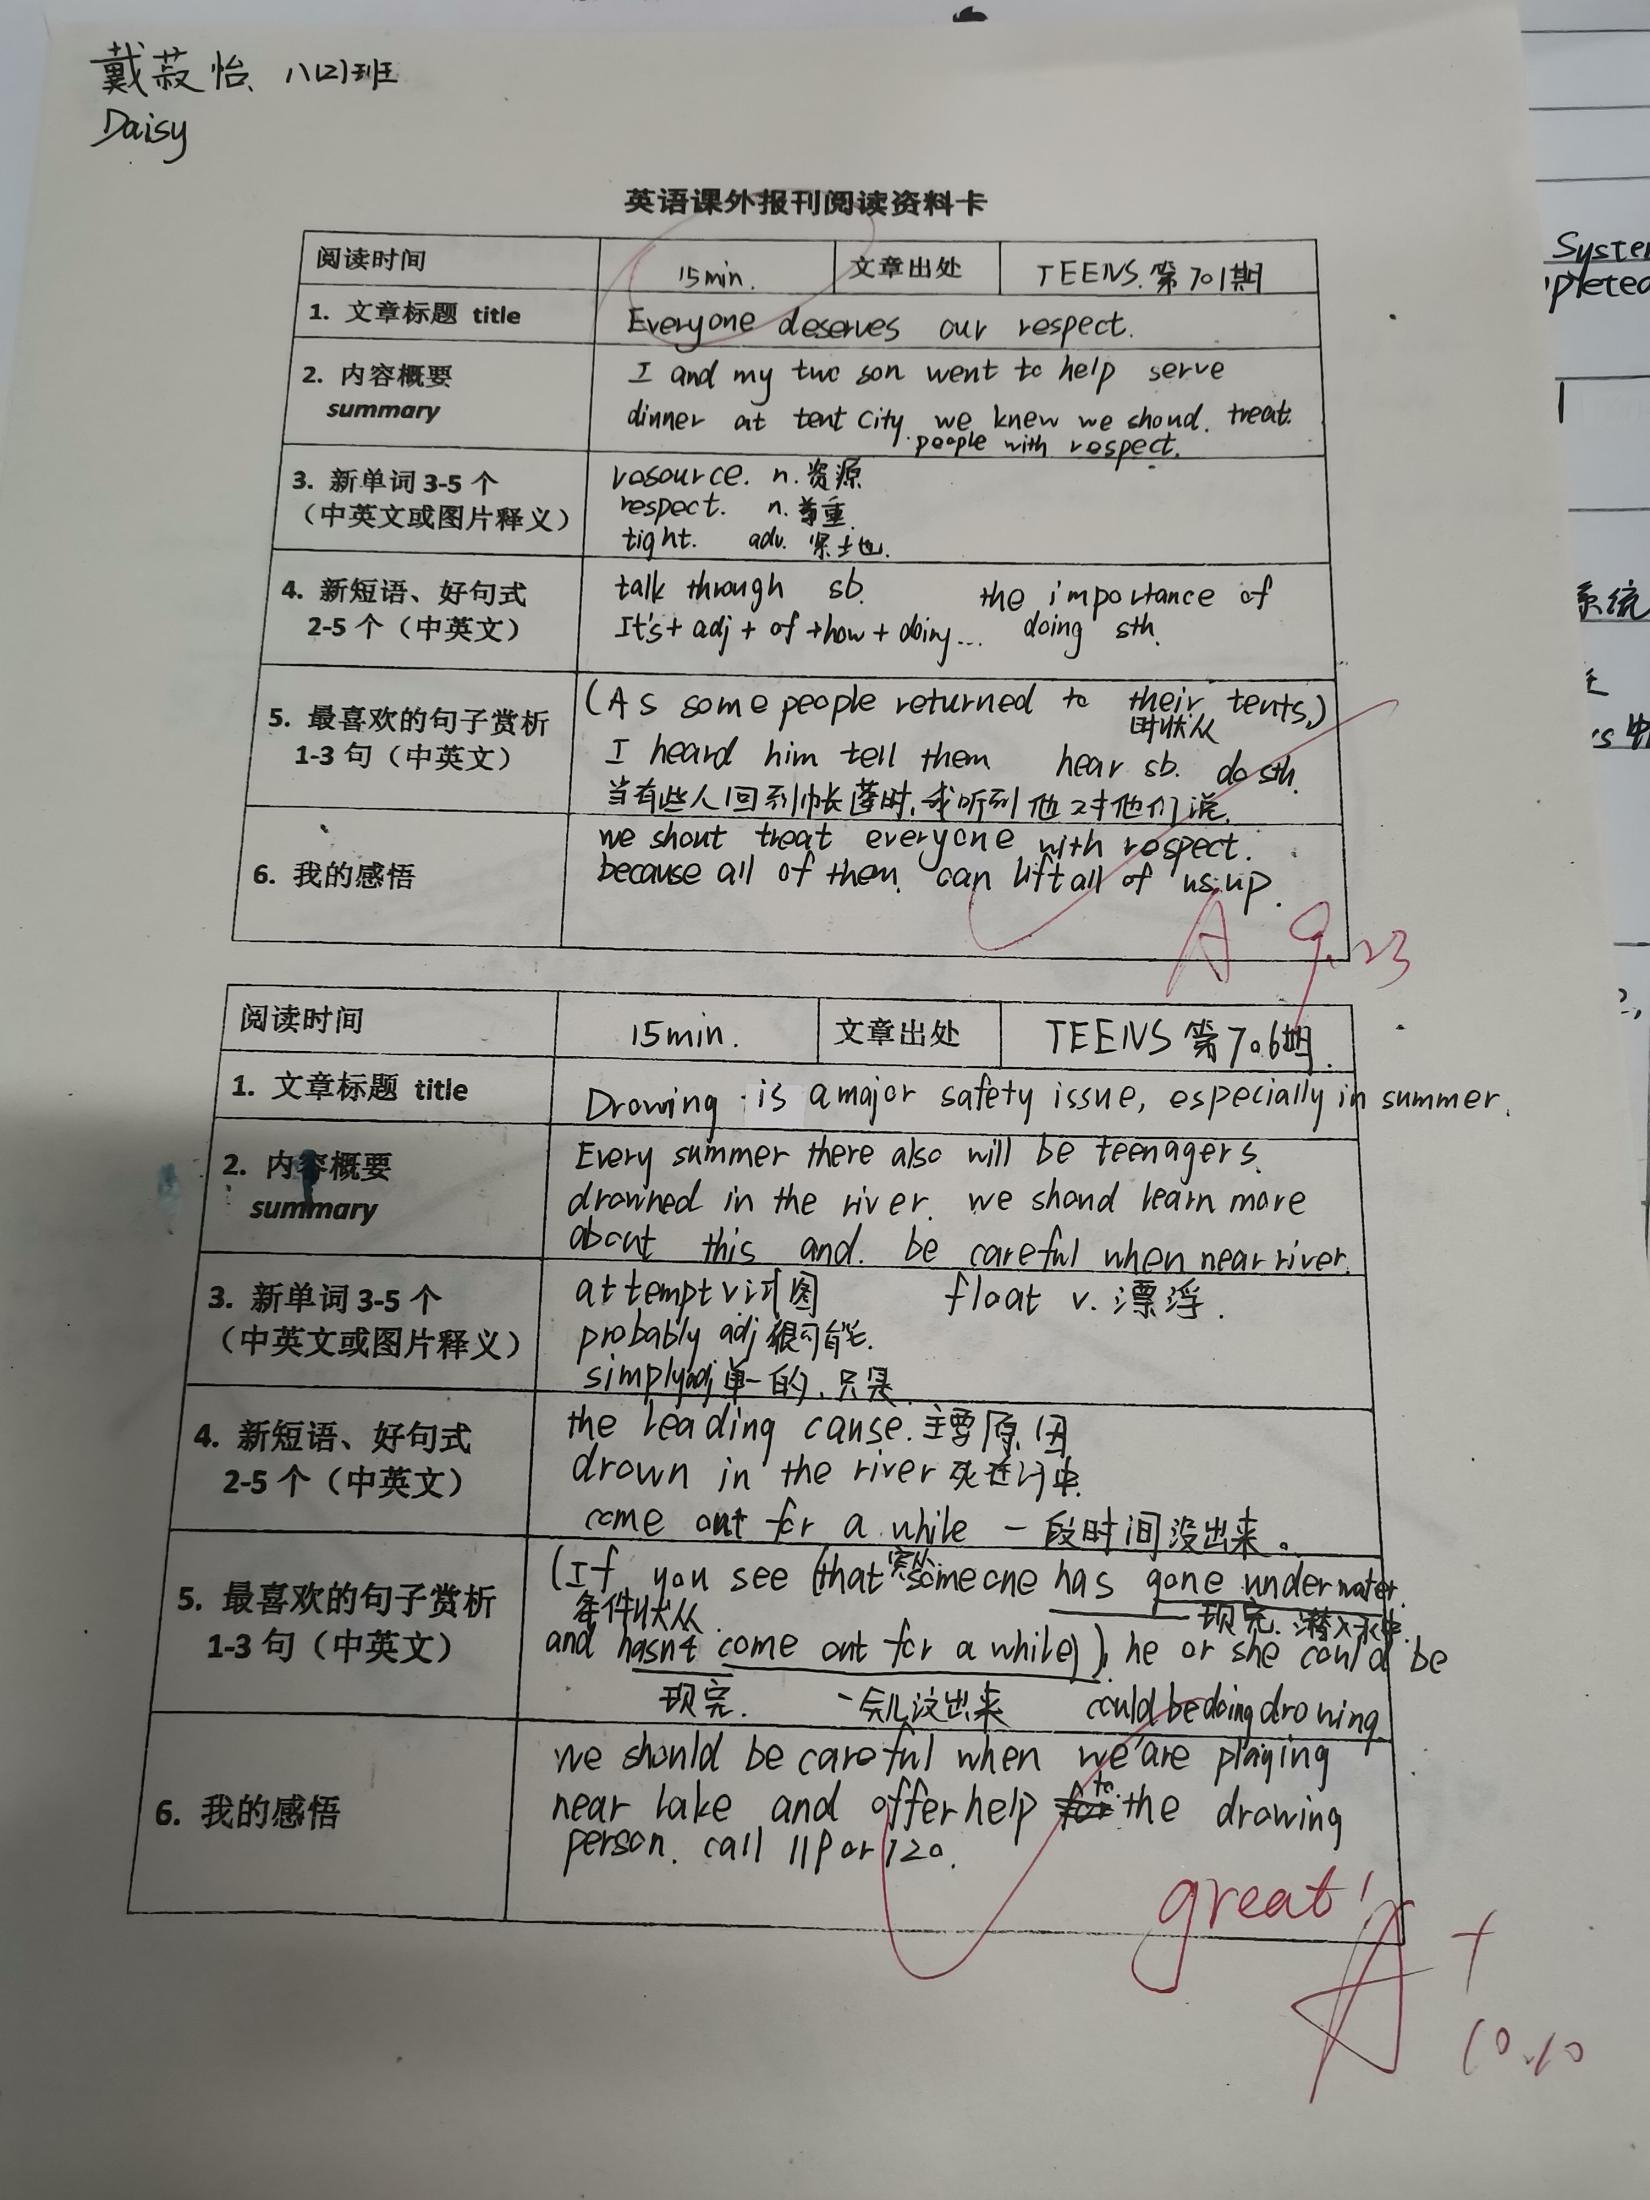 戴菽怡 八(2)班
Daisy
英语课外报刊阅读资料卡
阅读时间 15min. 文章出处 TEENS.第701期
1. 文章标题 title Everyone deserves our respect.
2. 内容概要 summary
I and my two son went to help serve
dinner at tent City. we knew we shoud. treat.
people with respect.
3. 新单词 3-5 个
（中英文或图片释义）
resource. n.资源
respect. n.尊重
tight. adv. 紧土也.
4. 新短语、好句式
2-5 个（中英文）
talk through sb. the importance of
It's+ adj + of +how + doing... doing sth.
5. 最喜欢的句子赏析
1-3 句（中英文）
(As some people returned to their tents,)
时状从
I heard him tell them hear sb. do sth.
当有些人回到帐蓬时,我听到他对他们说.
6. 我的感悟
we shout treat everyone with respect.
because all of them. can lift all of us up.
A 9.23
阅读时间 15min. 文章出处 TEENS 第706期.
1. 文章标题 title Drowing is a major safety issue, especially in summer.
2. 内容概要
summary
Every summer there also will be teenagers.
drowned in the river. we shoud learn more
about this and. be careful when near river.
3. 新单词 3-5 个
（中英文或图片释义）
attempt v试图 float v. 漂浮.
probably adj 很可能.
simply adj 单一的、只是
4. 新短语、好句式
2-5 个（中英文）
the leading cause.主要原因
drown in the river 死在河中.
come out for a while 一段时间没出来。
5. 最喜欢的句子赏析
1-3 句（中英文）
(If you see (that someone has gone underwater.
宾从
条件状从 现完. 潜入水中.
and hasn't come out for a while)), he or she could be
现完. 一会儿没出来 could be doing drowing.
6. 我的感悟
we should be careful when we are playing
near lake and offer help to the drowing
person. call 119 or 120.
great!
A+
10.10
System
pleted
系统